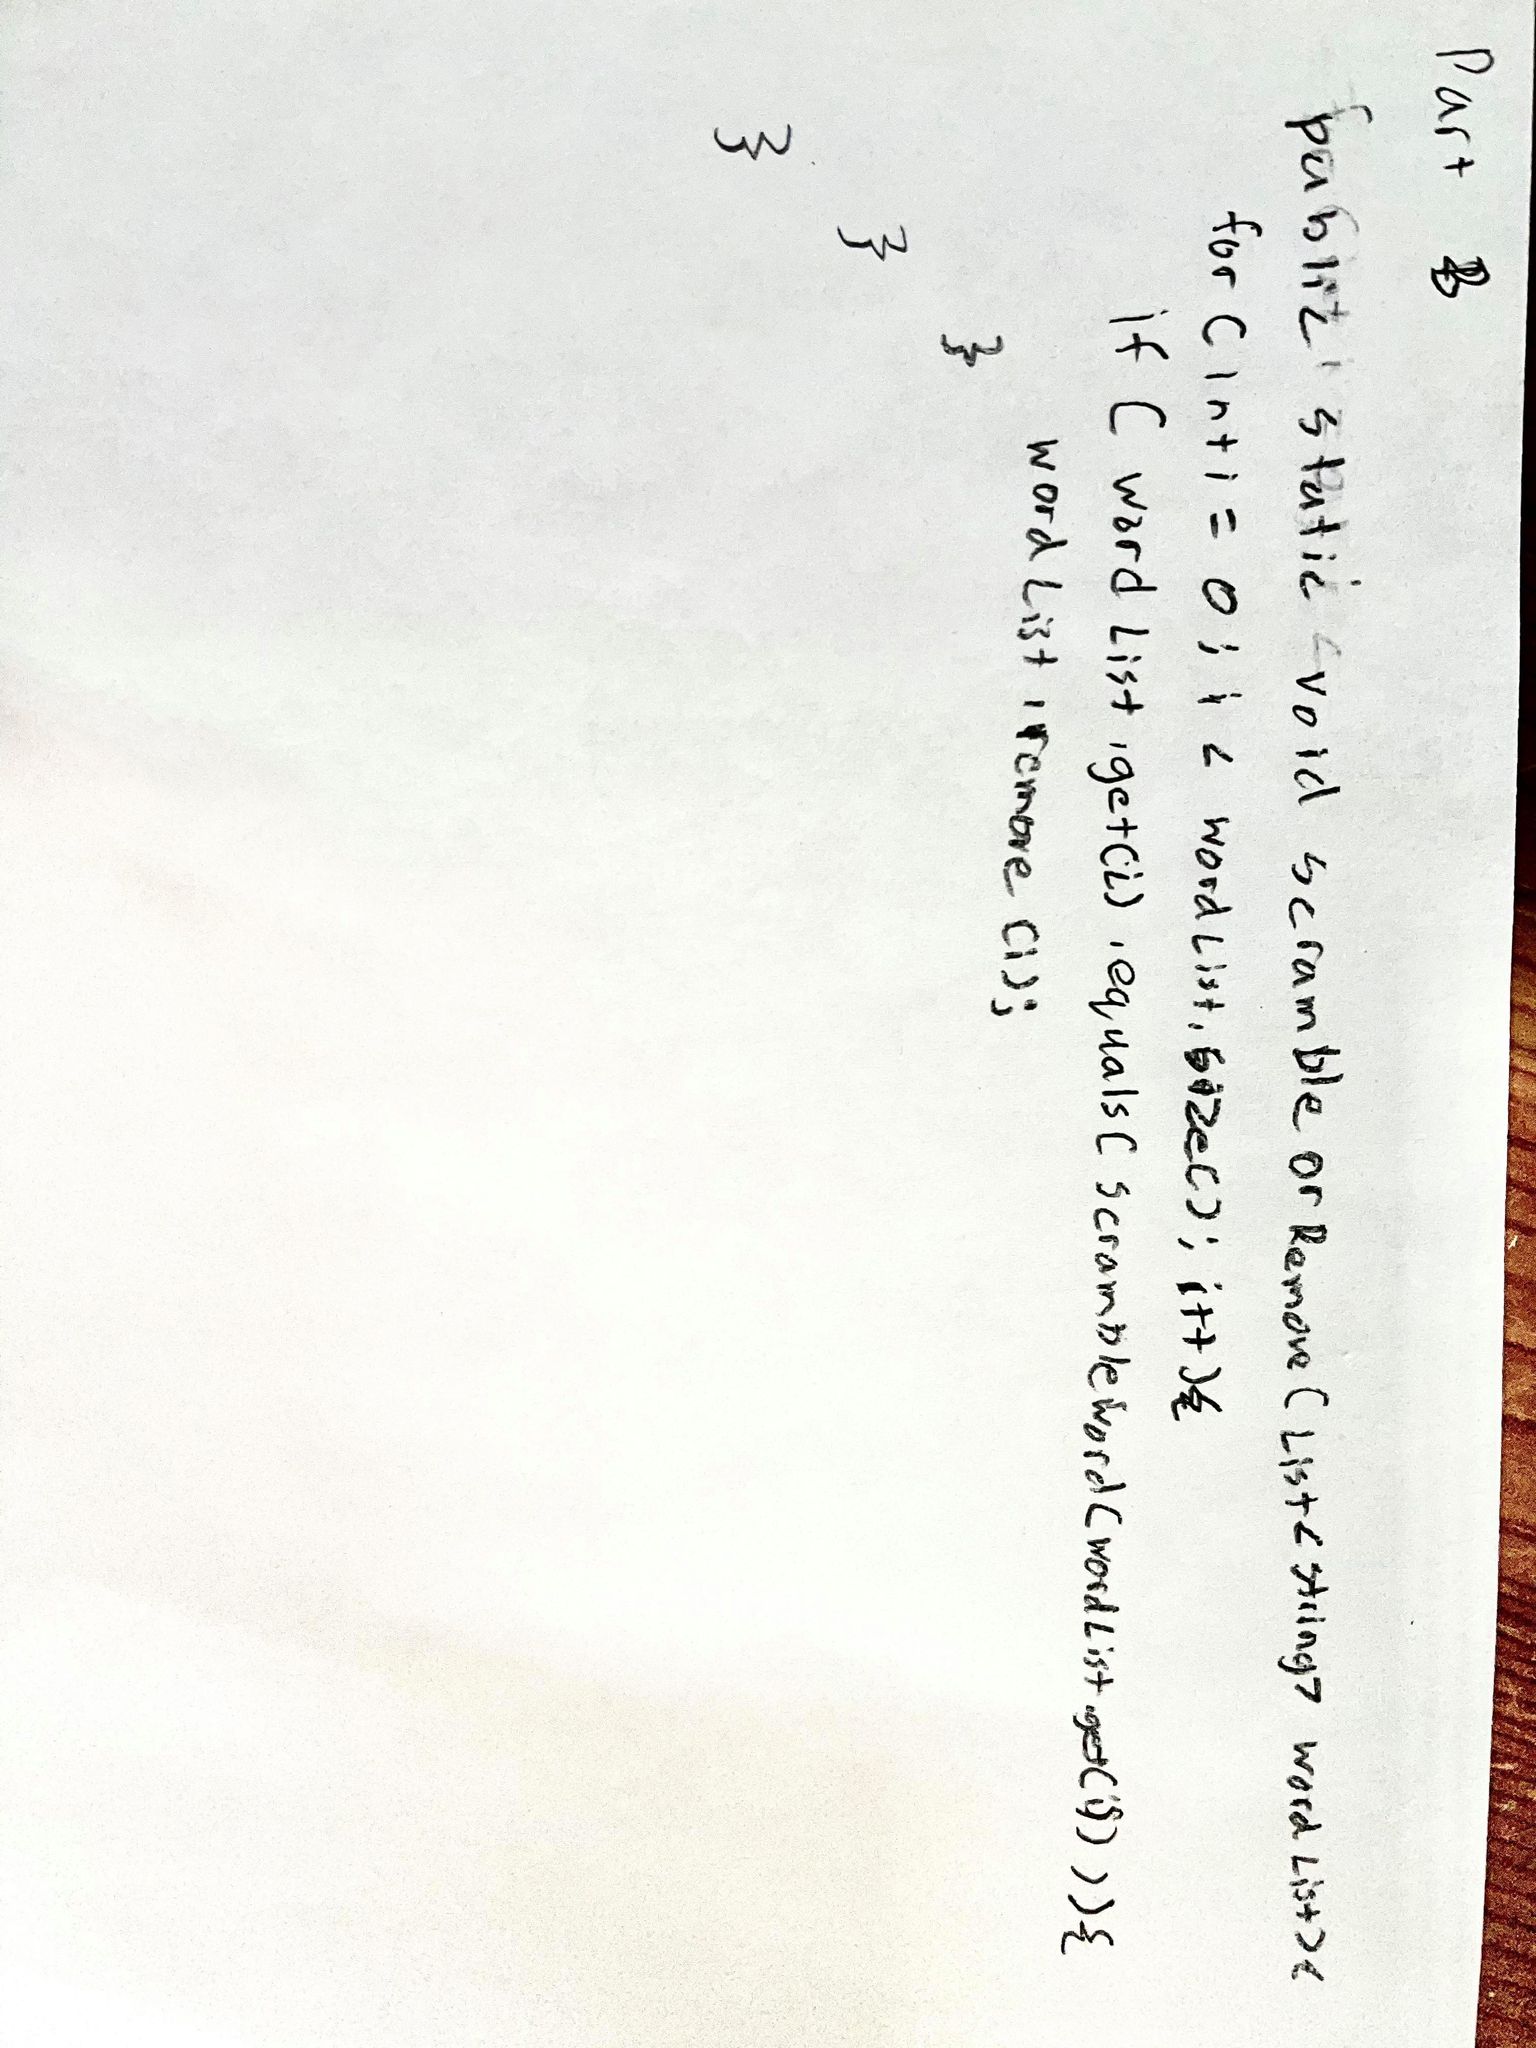 Part B
public static void scrambleorRemove(List<string> wordList){
for (int i = 0; i < wordList.size(); i++){
if (wordList.get(i).equals(scrambleWord(wordList.get(i)))){
wordList.remove(i);
}
}
}